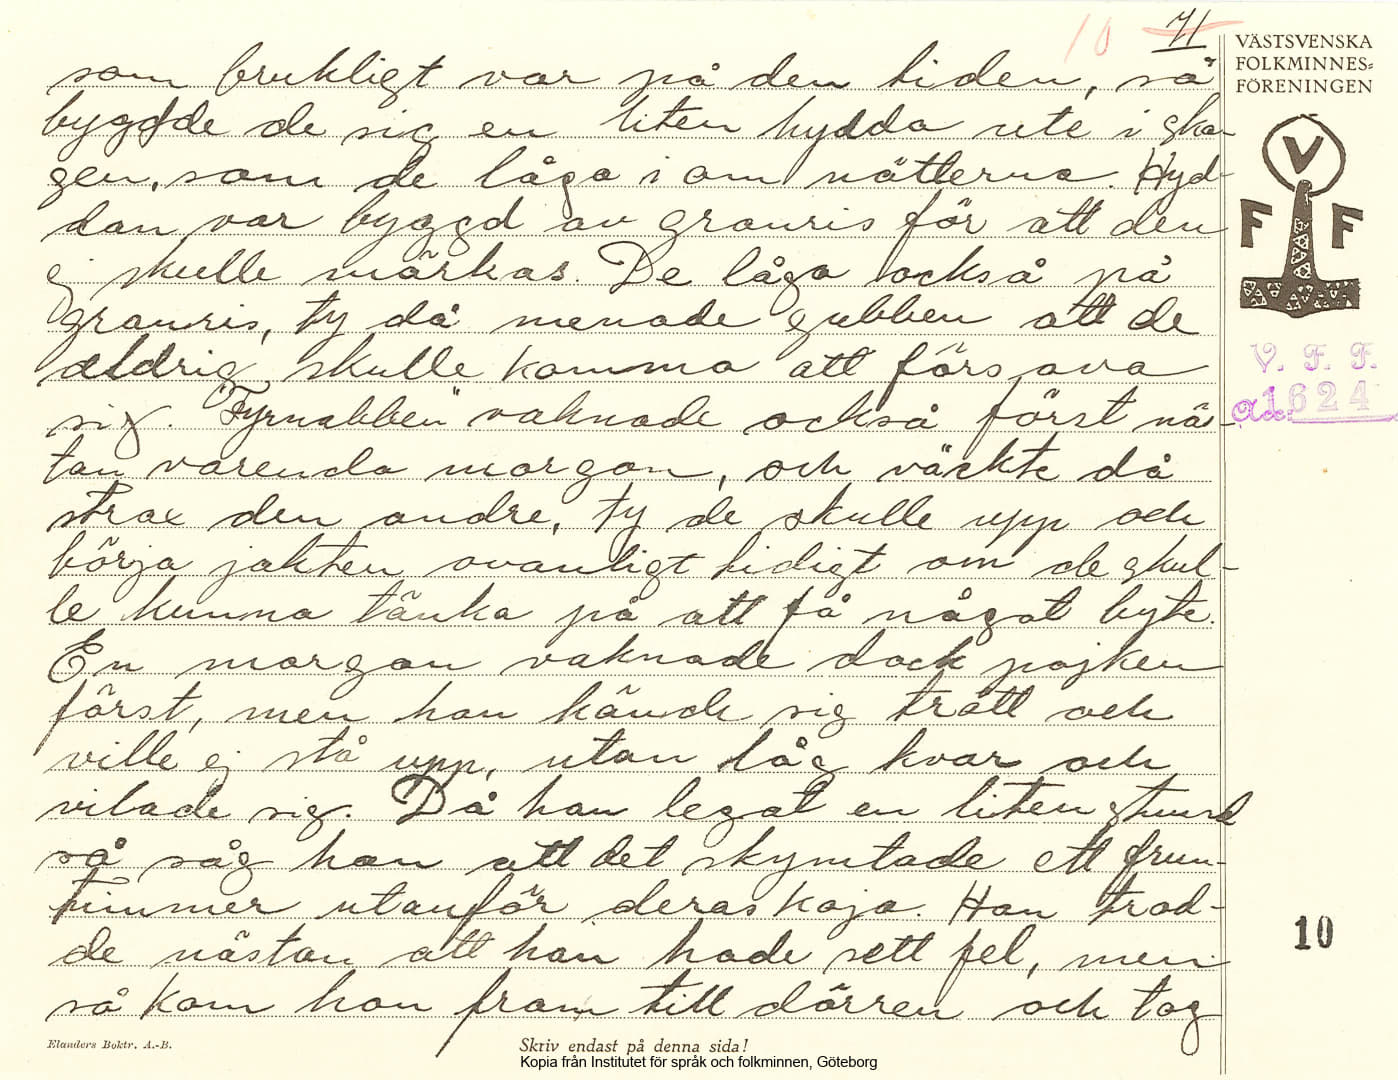 10 71
VÄSTSVENSKA
FOLKMINNES=
FÖRENINGEN
V
F F
V. F. F.
Acc. 1624
som brukligt var på den tiden, så
byggde de sig en liten hydda ute i sko-
gen, som de låga i om nätterna. Hyd-
dan var byggd av granris för att den
ej skulle märkas. De låga också på
granris, ty då menade gubben att de
aldrig skulle komma att försova
sig. "Fyrnabben" vaknade också först näs-
tan varenda morgon, och väckte då
strax den andre, ty de skulle upp och
börja jakten ovanligt tidigt om de skul-
le kunna tänka på att få något byte.
En morgon vaknade dock pojken
först, men han kände sig trött och
ville ej stå upp, utan låg kvar och
vilade sig. Då han legat en liten stund
så såg han att det skymtade ett frun-
timmer utanför deras koja. Han trod-
de nästan att han hade sett fel, men
så kom hon fram till dörren och tog
10
Elanders Boktr. A.-B.
Skriv endast på denna sida!
Kopia från Institutet för språk och folkminnen, Göteborg